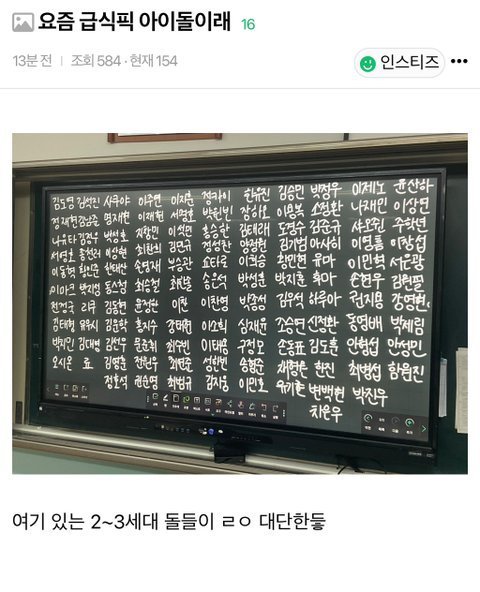 요즘 급식픽 아이돌이래 16
13분 전 | 조회 584 · 현재 154 인스티즈
김도영 김석진 사쿠야 이주연 이지훈 정카이 한유진 김승민 박정우 이제노 윤산하
정재현 김남준 명재현 이재현 서명호 박원빈 장하오 이용복 소정환 나재민 이상연
나유타 김정우 박성호 지창민 이석민 홍승한 김태래 김준규 샤오쥔 주학년
서영호 이상혁 최찬희 김민규 정성찬 양정원 김기범 아사히 이창섭
이동혁 황인준 한태산 손영재 부승관 쇼타로 이희승 황민현 유마 이민혁 서은광
이마크 박지성 동스청 최승철 최한솔 송은석 박성훈 박지훈 후마 손현우 김원필
전정국 리쿠 김동현 윤정한 이찬 이찬영 박종성 김우석 권지용 강영현
김태형 유우시 김운학 홍지수 강태현 이소희 심재윤 조승연 신정환 동영배
박지민 김대영 김선우 문준휘 최수빈 이태용 구정모 손동표 김도훈 안형섭 안성민
오시온 료 김영훈 전원우 최연준 성한빈 송형준 채형원 한진 최병섭 함원진
정호석 권순영 최범규 김지웅 이민호 변백현 박진우
차은우
여기 있는 2~3세대 돌들이 ㄹㅇ 대단한듷